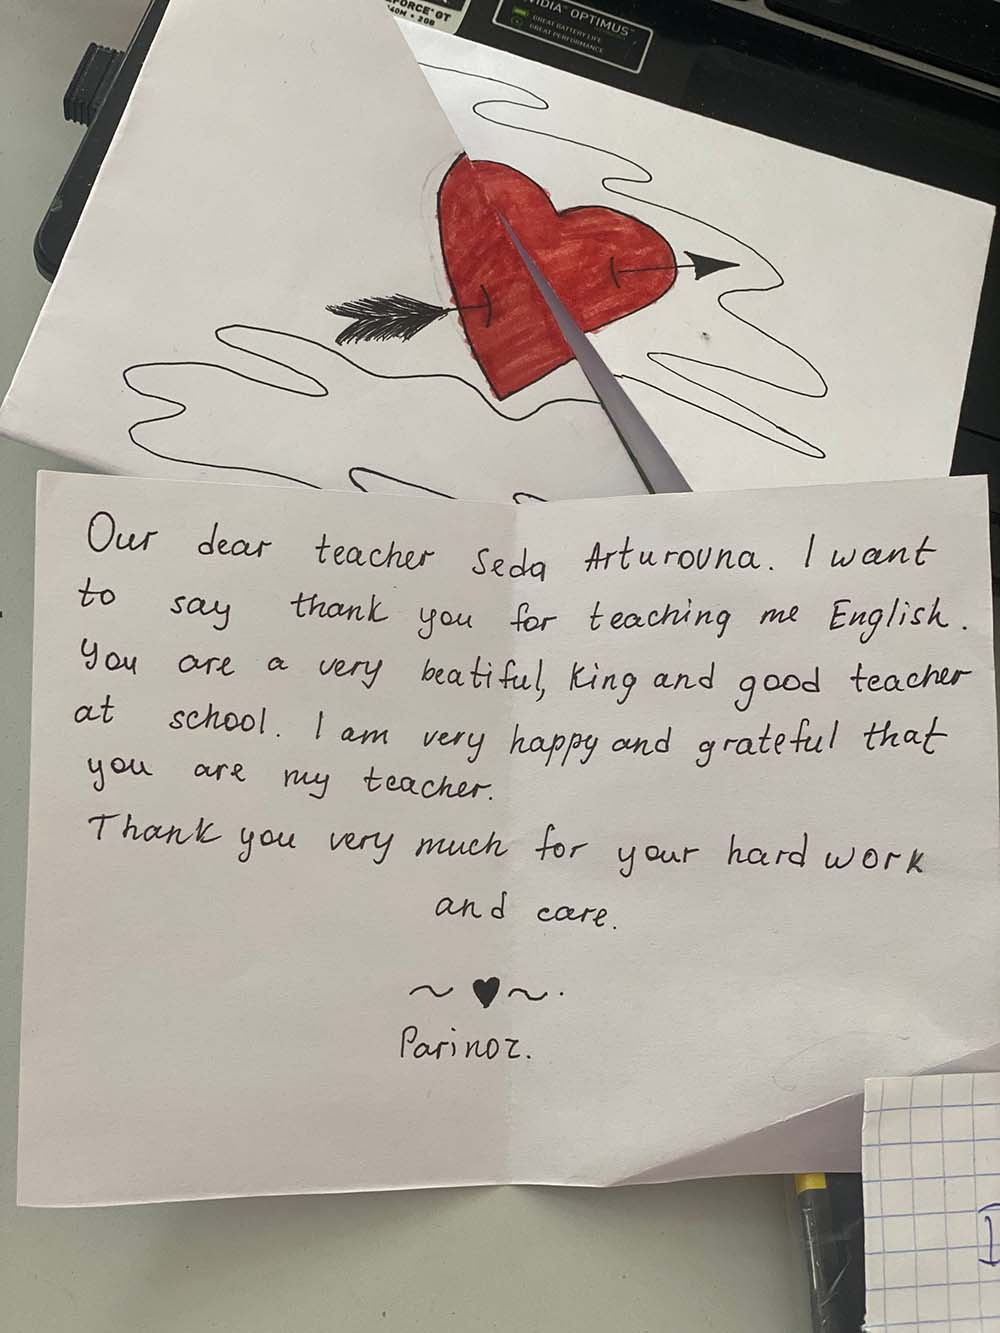 FORCE GT
40M • 2GB
VIDIA OPTIMUS™
GREAT BATTERY LIFE
GREAT PERFORMANCE
Our dear teacher Seda Arturovna. I want
to say thank you for teaching me English.
You are a very beatiful, king and good teacher
at school. I am very happy and grateful that
you are my teacher.
Thank you very much for your hard work
and care.
~ ♥ ~.
Parinoz.